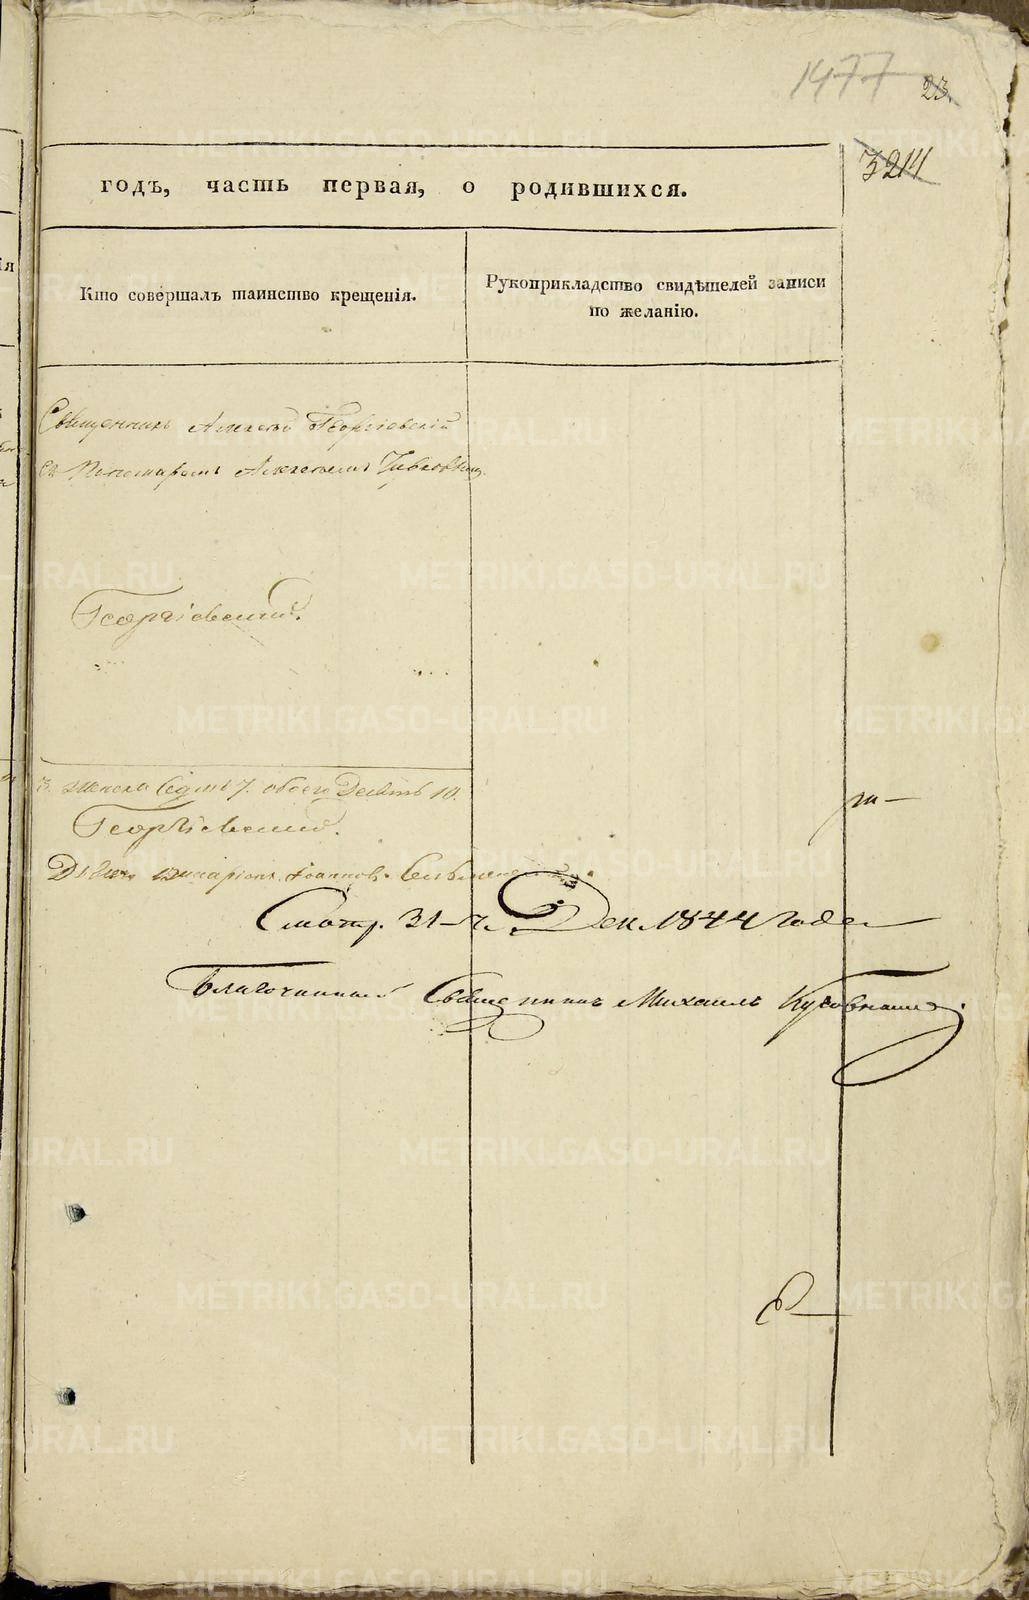 1477
23.
3211
годъ, часть первая, о родившихся.
Кто совершалъ таинство крещенія.
Рукоприкладство свидѣтелей записи
по желанію.
Священникъ Алексѣй Георгіевскій
съ Пономаремъ Алексѣемъ
Георгіевскій.
3. женска Седмь 7. обоего Десять 10.
Георгіевскій.
Дьячекъ Іоанновъ
Смотр. 31 Дек. 1844 года
Благочинный Священникъ Михаилъ
METRIKI.GASO-URAL.RU